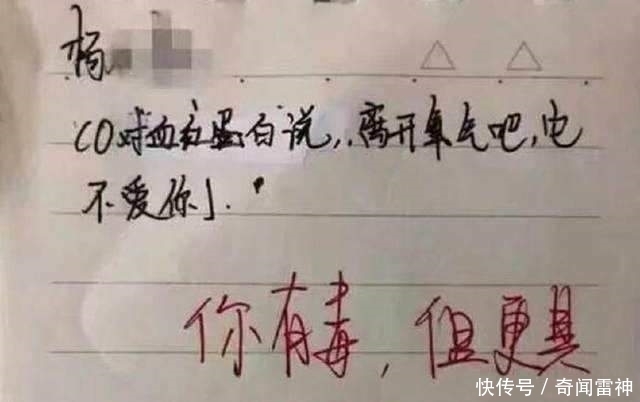 杨
CO对血红蛋白说,离开氧气吧,它
不爱你」.
你有毒,但更具
快传号/奇闻雷神